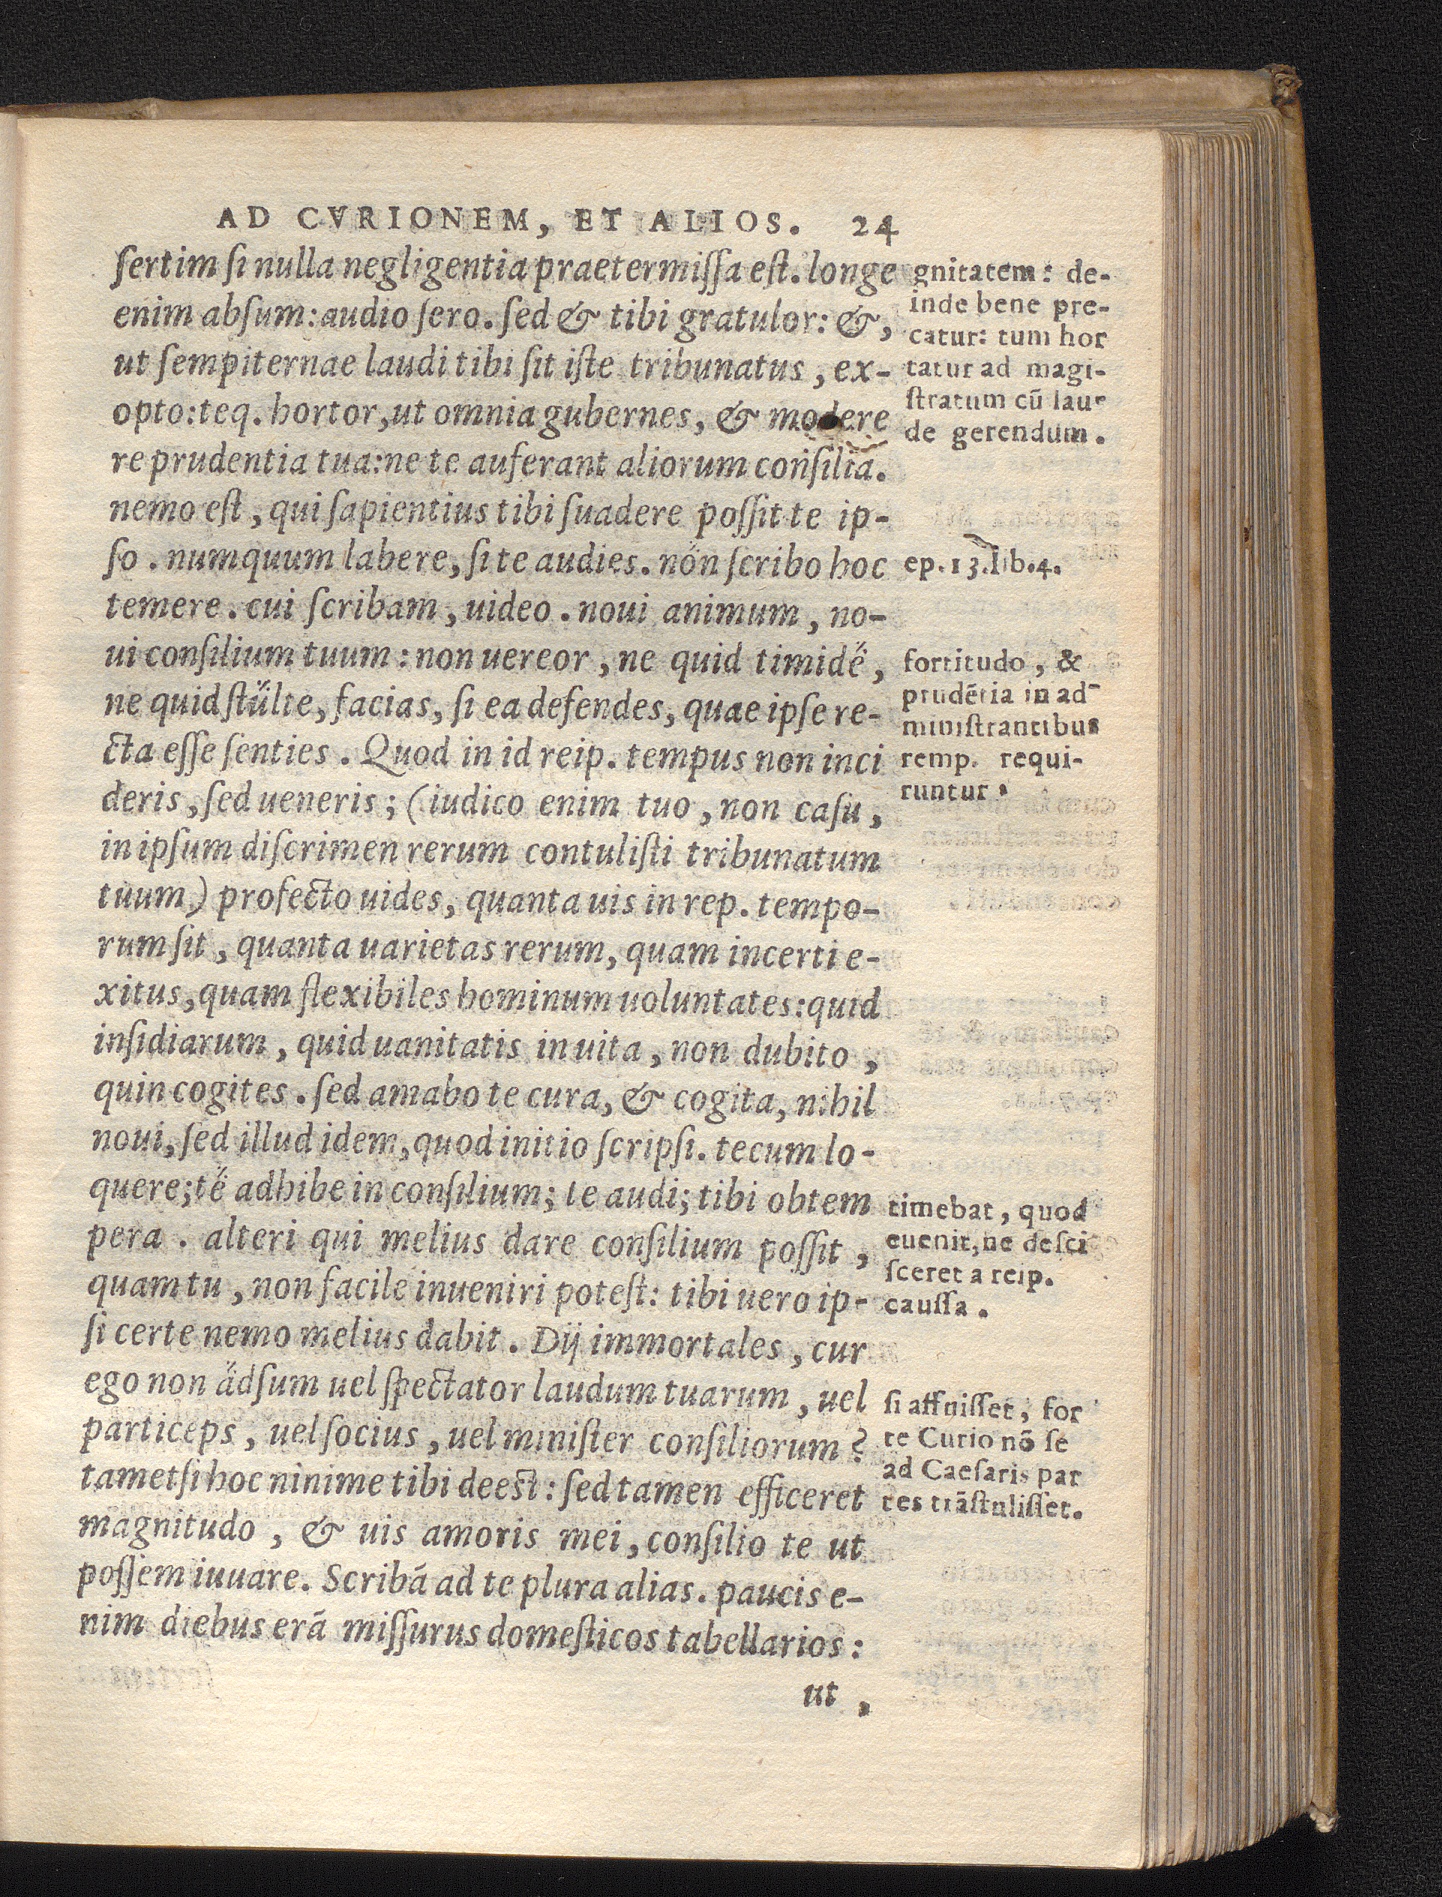 AD CVRIONEM, ET ALIOS. 24
ſertim ſi nulla negligentia praetermiſſa eſt. longe
enim abſum: audio ſero. ſed & tibi gratulor: &,
ut ſempiternae laudi tibi ſit iſte tribunatus, ex-
opto: teq. hortor, ut omnia gubernes, & modere
re prudentia tua: ne te auferant aliorum conſilia.
nemo eſt, qui ſapientius tibi ſuadere poſſit te ip-
ſo. numquum labere, ſi te audies. non ſcribo hoc
temere. cui ſcribam, uideo. noui animum, no-
ui conſilium tuum: non uereor, ne quid timide,
ne quid ſtulte, facias, ſi ea defendes, quae ipſe re-
cta eſſe ſenties. Quod in id reip. tempus non inci
deris, ſed ueneris; (iudico enim tuo, non caſu,
in ipſum diſcrimen rerum contuliſti tribunatum
tuum) profecto uides, quanta uis in rep. tempo-
rum ſit, quanta uarietas rerum, quam incerti e-
xitus, quam flexibiles hominum uoluntates: quid
inſidiarum, quid uanitatis in uita, non dubito,
quin cogites. ſed amabo te cura, & cogita, nihil
noui, ſed illud idem, quod initio ſcripſi. tecum lo-
quere; te adhibe in conſilium; te audi; tibi obtem
pera. alteri qui melius dare conſilium poſſit,
quam tu, non facile inueniri poteſt: tibi uero ip-
ſi certe nemo melius dabit. Dij immortales, cur
ego non adſum uel ſpectator laudum tuarum, uel
particeps, uel ſocius, uel miniſter conſiliorum?
tametſi hoc ninime tibi deeſt: ſed tamen efficeret
magnitudo, & uis amoris mei, conſilio te ut
poſſem iuuare. Scribã ad te plura alias. paucis e-
nim diebus erã miſſurus domeſticos tabellarios:
ut,
gnitatem: de-
inde bene pre-
catur: tum hor
tatur ad magi-
ſtratum cũ lau-
de gerendum.
ep. 13. lib. 4.
fortitudo, &
prudẽtia in ad-
miniſtrantibus
remp. requi-
runtur.
timebat, quod
euenit, ne deſci
ſceret a reip.
cauſſa.
ſi affuiſſet, for
te Curio nõ ſe
ad Caeſaris par
tes trãſtuliſſet.